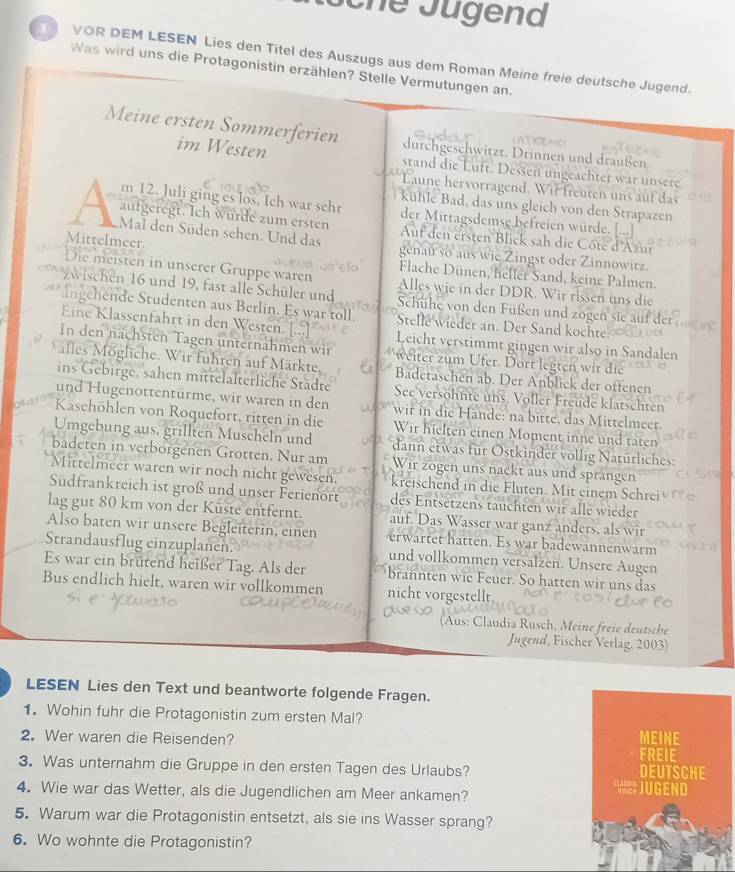 Jugend
1 VOR DEM LESEN Lies den Titel des Auszugs aus dem Roman Meine freie deutsche Jugend.
Was wird uns die Protagonistin erzählen? Stelle Vermutungen an.
Meine ersten Sommerferien
im Westen
Am 12. Juli ging es los. Ich war sehr
aufgeregt. Ich würde zum ersten
Mal den Süden sehen. Und das
Mittelmeer.
Die meisten in unserer Gruppe waren
zwischen 16 und 19, fast alle Schüler und
angehende Studenten aus Berlin. Es war toll.
Eine Klassenfahrt in den Westen. [...]
In den nächsten Tagen unternahmen wir
alles Mögliche. Wir fuhren auf Märkte,
ins Gebirge, sahen mittelalterliche Städte
und Hugenottentürme, wir waren in den
Käsehöhlen von Roquefort, ritten in die
Umgebung aus, grillten Muscheln und
badeten in verborgenen Grotten. Nur am
Mittelmeer waren wir noch nicht gewesen.
Südfrankreich ist groß und unser Ferienort
lag gut 80 km von der Küste entfernt.
Also baten wir unsere Begleiterin, einen
Strandausflug einzuplanen.
Es war ein brütend heißer Tag. Als der
Bus endlich hielt, waren wir vollkommen
durchgeschwitzt. Drinnen und draußen
stand die Luft. Dessen ungeachtet war unsere
Laune hervorragend. Wir freuten uns auf das
kühle Bad, das uns gleich von den Strapazen
der Mittagsdemse befreien würde. [...]
Auf den ersten Blick sah die Côte d'Azur
genau so aus wie Zingst oder Zinnowitz.
Flache Dünen, heller Sand, keine Palmen.
Alles wie in der DDR. Wir rissen uns die
Schuhe von den Füßen und zogen sie auf der
Stelle wieder an. Der Sand kochte.
Leicht verstimmt gingen wir also in Sandalen
weiter zum Ufer. Dort legten wir die
Badetaschen ab. Der Anblick der offenen
See versöhnte uns. Voller Freude klatschten
wir in die Hände: na bitte, das Mittelmeer.
Wir hielten einen Moment inne und taten
dann etwas für Ostkinder völlig Natürliches:
Wir zogen uns nackt aus und sprangen
kreischend in die Fluten. Mit einem Schrei
des Entsetzens tauchten wir alle wieder
auf. Das Wasser war ganz anders, als wir
erwartet hatten. Es war badewannenwarm
und vollkommen versalzen. Unsere Augen
brannten wie Feuer. So hatten wir uns das
nicht vorgestellt.
(Aus: Claudia Rusch, Meine freie deutsche
Jugend, Fischer Verlag, 2003)
LESEN Lies den Text und beantworte folgende Fragen.
1. Wohin fuhr die Protagonistin zum ersten Mal?
2. Wer waren die Reisenden?
3. Was unternahm die Gruppe in den ersten Tagen des Urlaubs?
4. Wie war das Wetter, als die Jugendlichen am Meer ankamen?
5. Warum war die Protagonistin entsetzt, als sie ins Wasser sprang?
6. Wo wohnte die Protagonistin?
MEINE
FREIE
DEUTSCHE
CLAUDIA RUSCH JUGEND